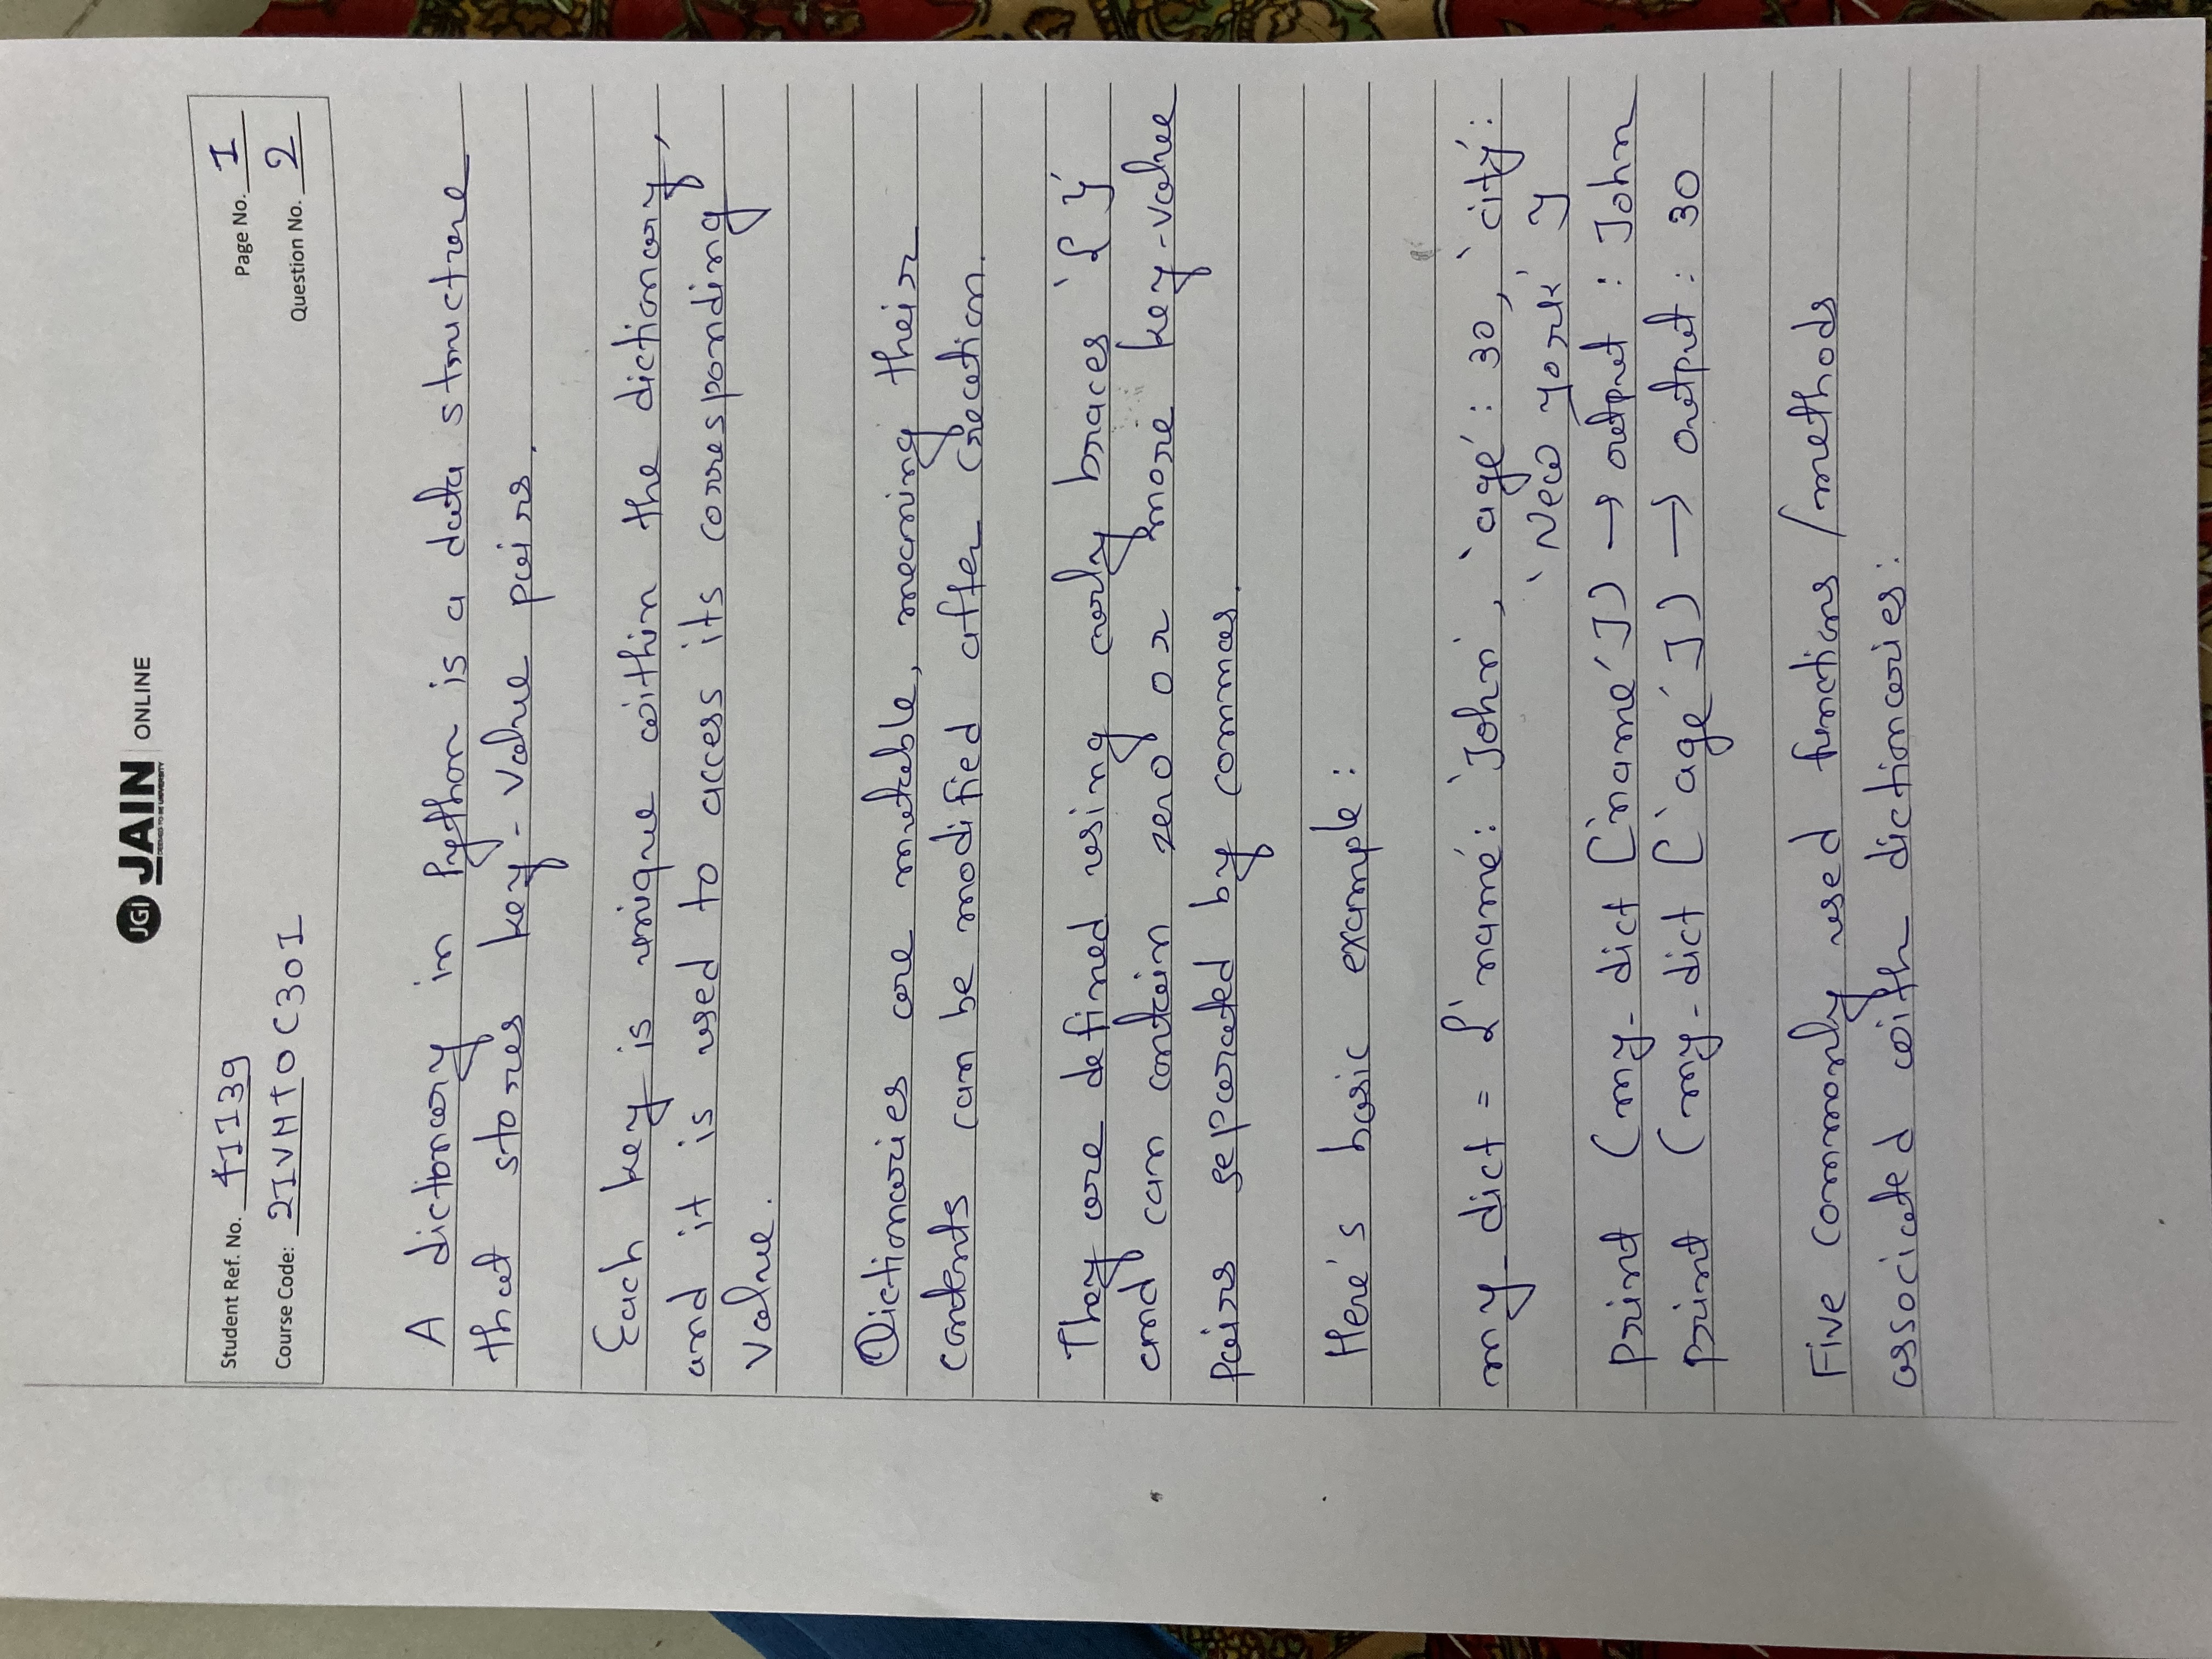 JGi JAIN ONLINE
DEEMED-TO-BE UNIVERSITY
Student Ref. No. 41139
Page No. 1
Course Code: 21VMT0C301
Question No. 2
A dictionary in Python is a data structure
that stores key-value pairs.
Each key is unique within the dictionary,
and it is used to access its corresponding
value.
Dictionaries are mutable, meaning their
contents can be modified after creation.
They are defined using curly braces '{ }'
and can contain zero or more key-value
pairs separated by commas.
Here's basic example:
my_dict = {'name': 'John', 'age': 30, 'city':
'New york' }
print (my_dict ['name']) → output : John
print (my_dict ['age']) → output : 30
Five commonly used functions /methods
associated with dictionaries: